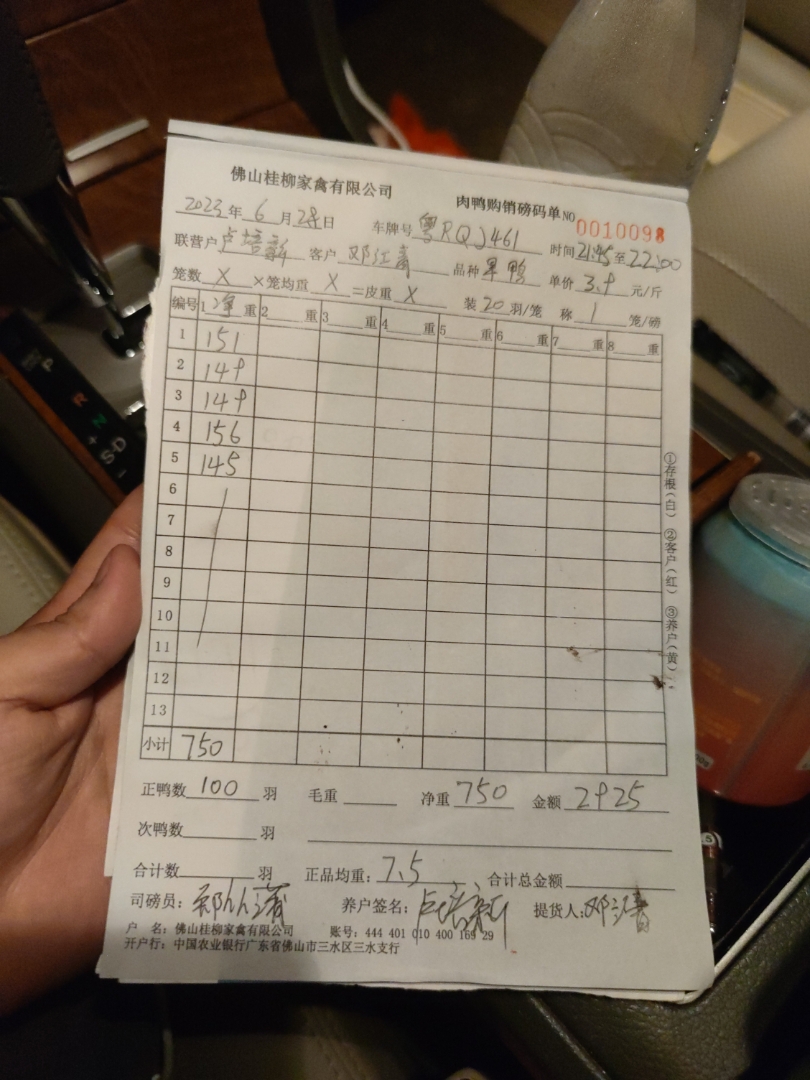 佛山桂柳家禽有限公司 肉鸭购销磅码单 NO 0010098
2023年 6月 28日 车牌号 粤RQJ461 时间 21:45 至 22:00
联营户 卢培新 客户 邓江青 品种 单价 3.9 元/斤
笼数 X ×笼均重 X =皮重 X 装 20 羽/笼 称 1 笼/磅
编号 1 净 重 2 重 3 重 4 重 5 重 6 重 7 重 8 重
1 151
2 149
3 149
4 156
5 145
6
7
8
9
10
11
12
13
小计 750
正鸭数 100 羽 毛重 净重 750 金额 2925
次鸭数 羽
合计数 羽 正品均重: 7.5 合计总金额
司磅员: 养户签名: 卢培新 提货人: 邓江青
户 名: 佛山桂柳家禽有限公司 账号: 444 401 010 400 169 29
开户行: 中国农业银行广东省佛山市三水区三水支行
①存根(白) ②客户(红) ③养户(黄)
P
R
N
+
S D
-